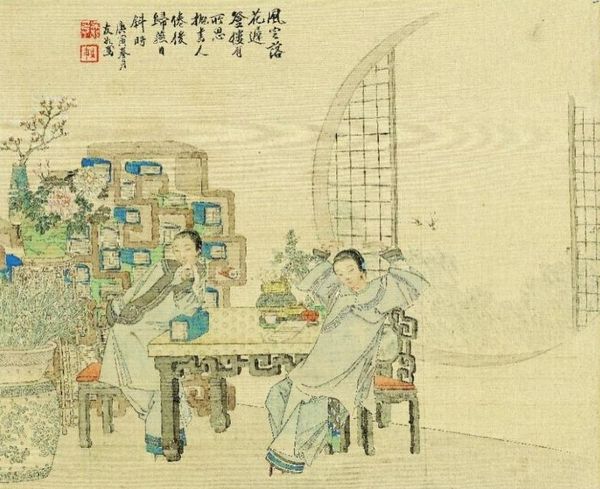 風定落
花遲
登樓有
所思
抛書人
倦後
歸燕日
斜時
庚寅春月
友如寫